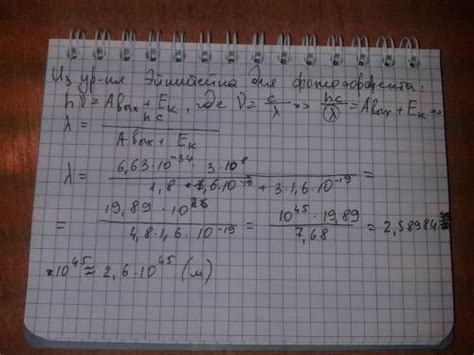 Из ур-ния Эйнштейна для фотоэффекта:
hν = Aвых + Eк, где ν = c/λ => hc/λ = Aвых + Eк =>
λ = hc / (Aвых + Eк)
λ = (6,63·10^-34 · 3·10^8) / (1,8·1,6·10^-19 + 3·1,6·10^-19) =
= 19,89·10 / (4,8·1,6·10^-19) = (10^45 · 19,89) / 7,68 = 2,58984
·10^45 ≈ 2,6·10^45 (м)